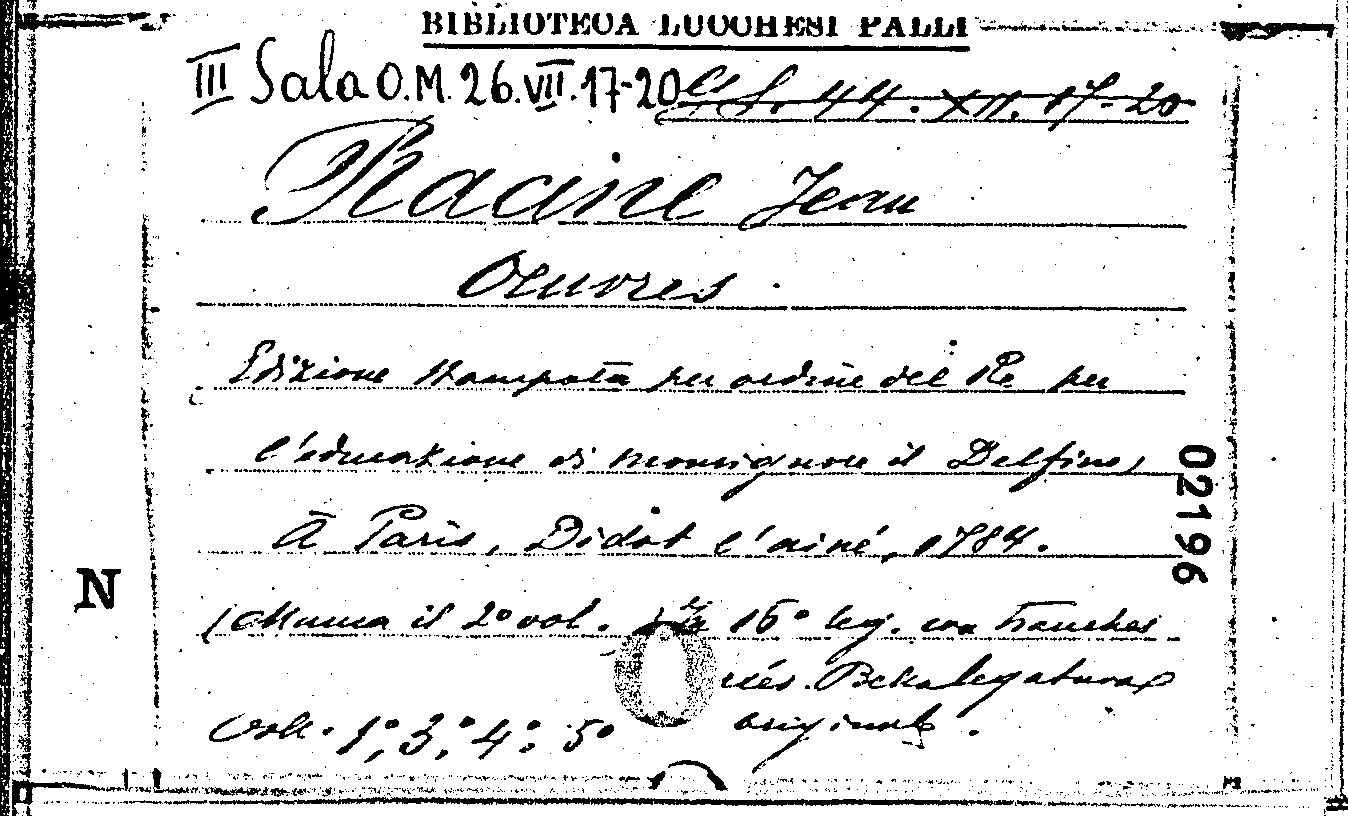 BIBLIOTECA LUCCHESI PALLI
III Sala O.M. 26.VII.17-20 44. XII. 17-20
Racine Jean
Oeuvres.
Edizione stampata per ordine del Re per
l'educazione di monsignore il Delfino,
À Paris, Didot l'ainé, 1784.
(Manca il 2° vol. In 16° leg. con tranches
rées. Bella legatura
Voll. 1°, 3°, 4°, 5° originale.
02196
N